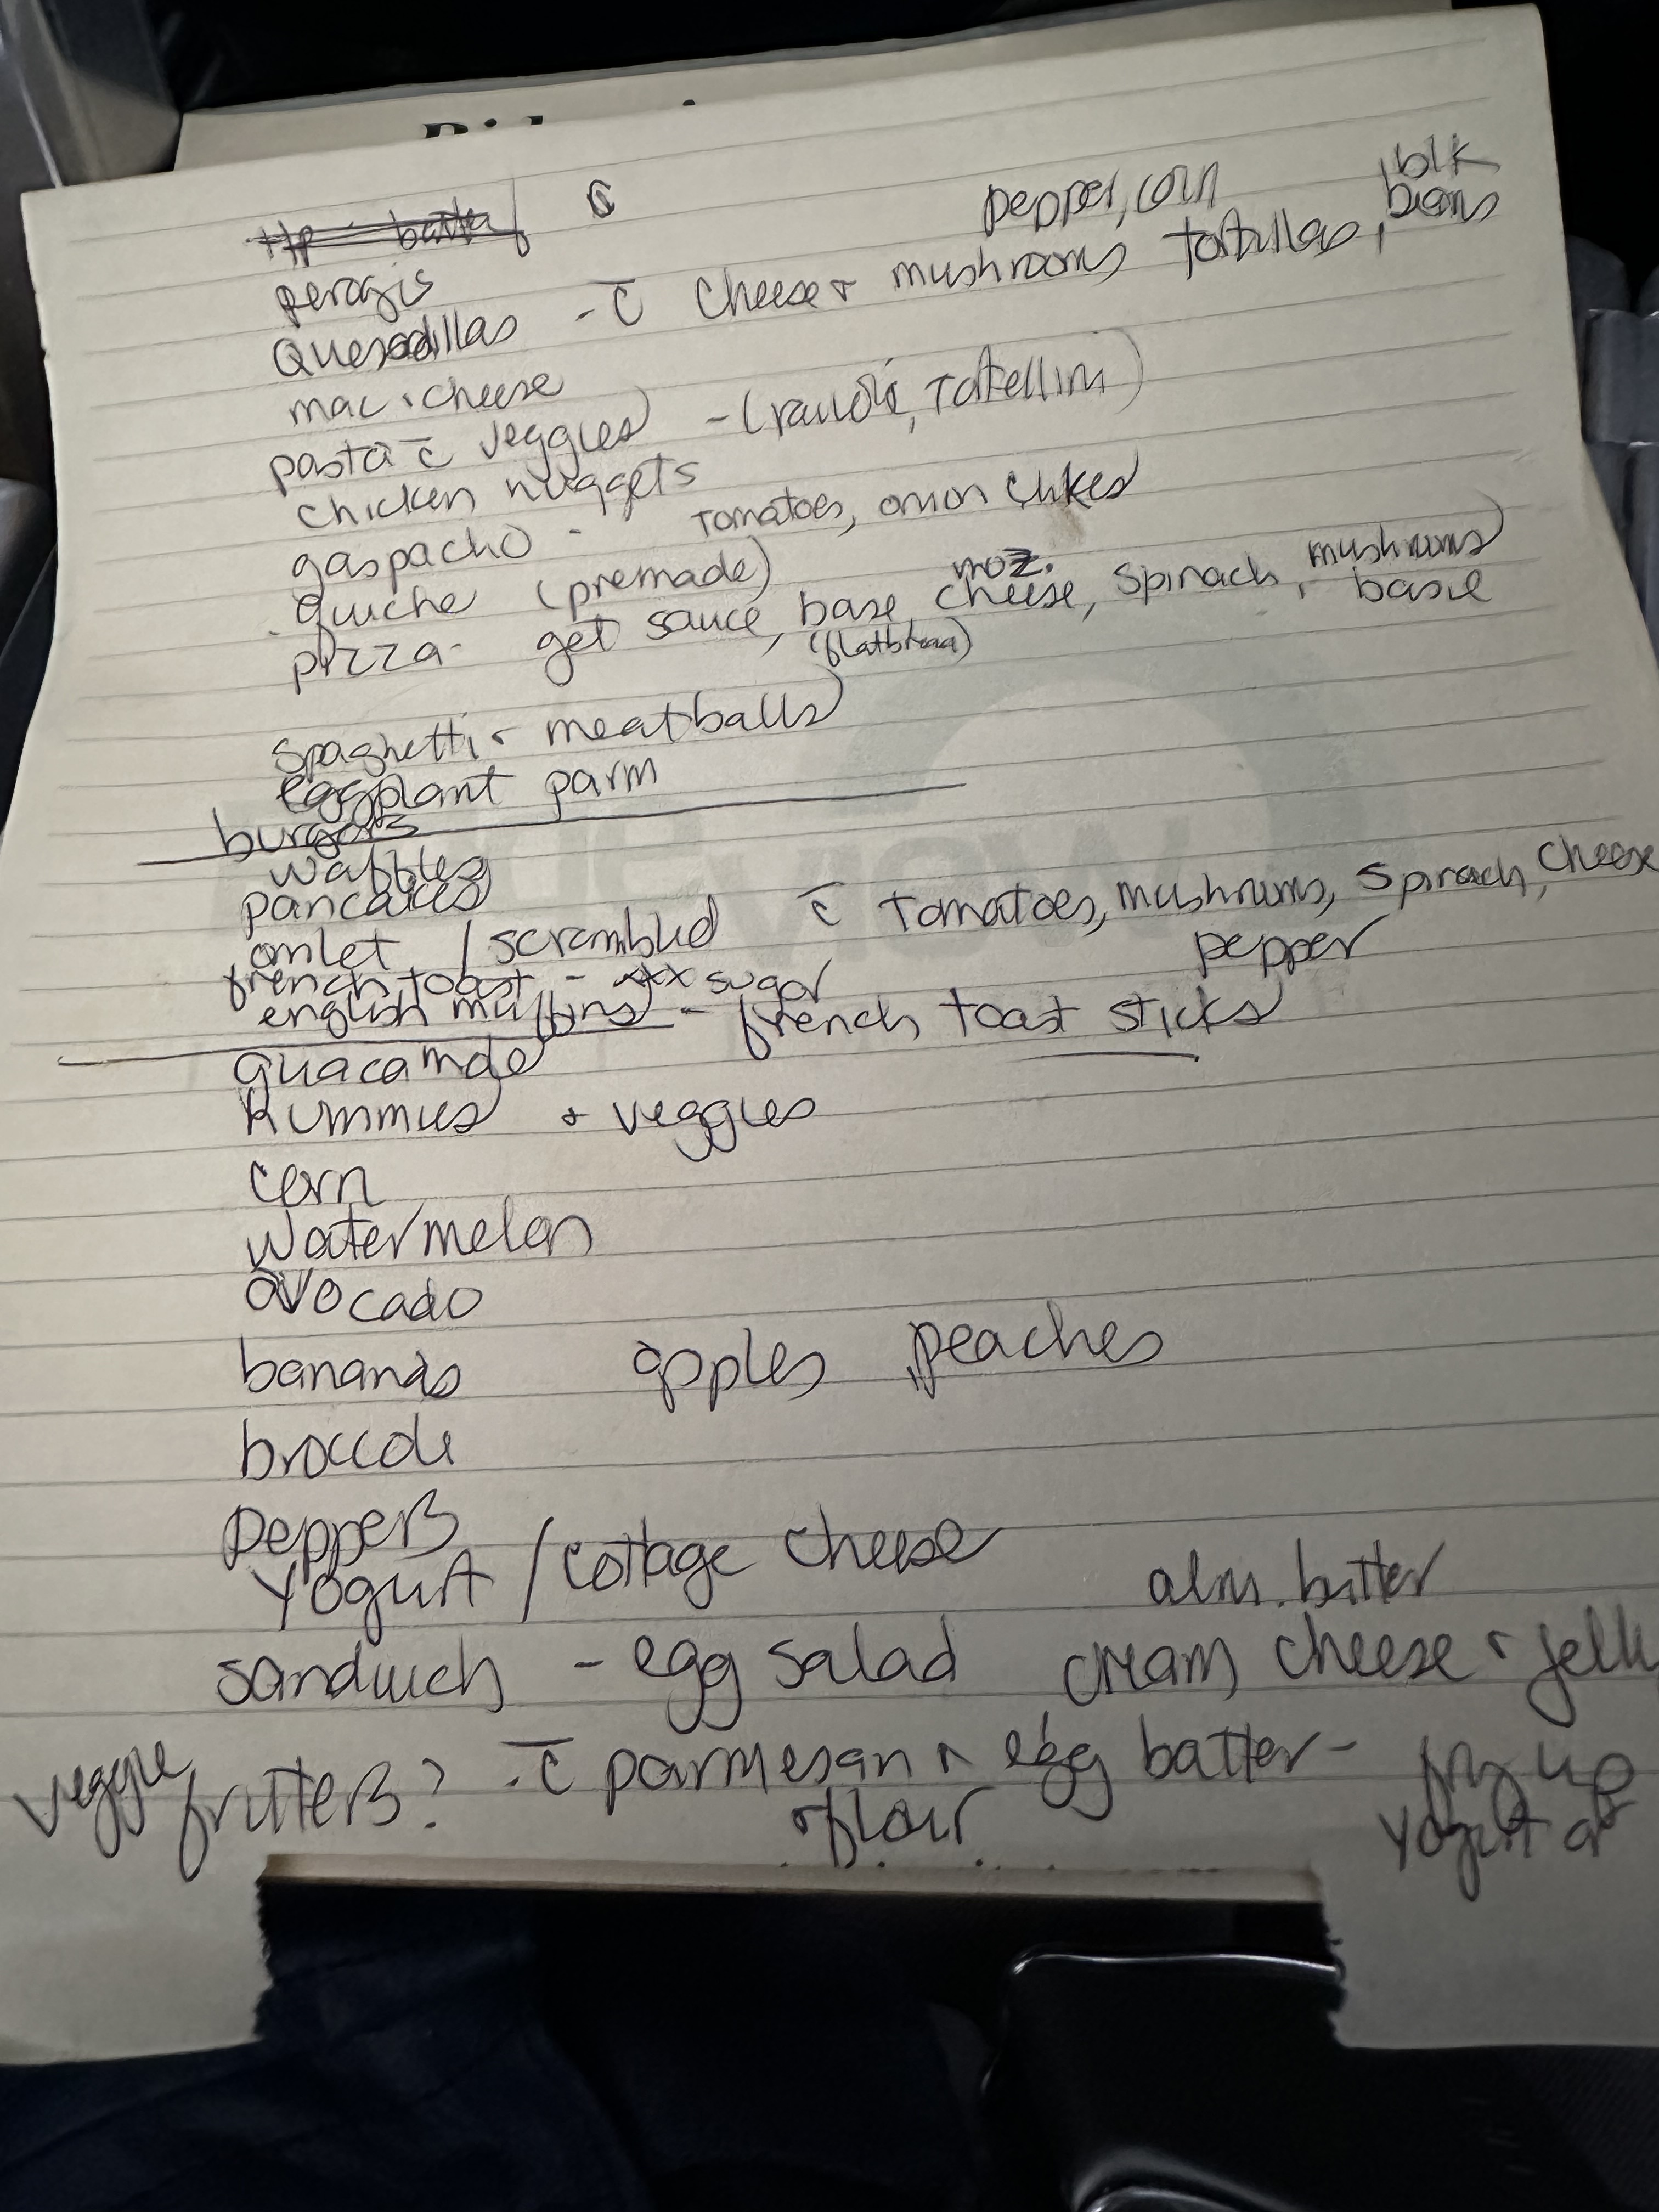 pepper, corn
blk
beans
perogis
Quesadillas - c̄ cheese + mushrooms tortillas,
mac + cheese
pasta c̄ veggies - (ravioli, tortellini)
chicken nuggets
gaspacho - tomatoes, onion
quiche (premade)
moz.
mushrooms
pizza - get sauce, base cheese, spinach, basil
(flatbread)
spaghetti + meatballs
eggplant parm
burgers
waffles
pancakes
omlet / scrambled c̄ tomatoes, mushrums, spinach, cheese
pepper
french toast - xxx sugar
english muffins - french toast sticks
guacamole
hummus + veggies
corn
watermelon
avocado
bananas apples, peaches
broccoli
peppers
Yogurt / cottage cheese
alm. butter
sandwich - egg salad cream cheese + jelly
veggie fritters? c̄ parmesan + egg batter - fry up
+ flour
Yogurt